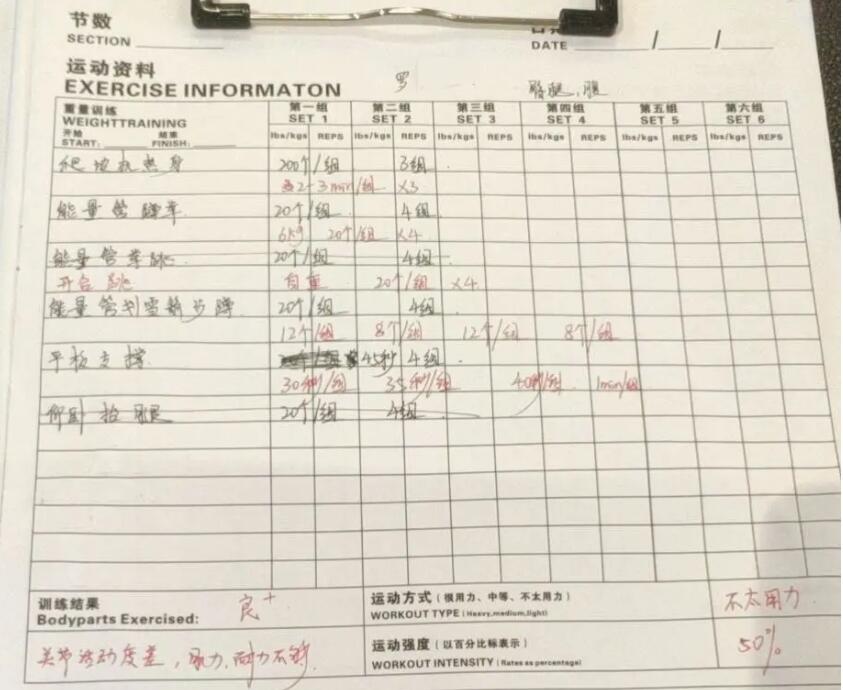 节数
SECTION
DATE / /
运动资料
EXERCISE INFORMATON 罗 臀腿,腹
重量训练 第一组 第二组 第三组 第四组 第五组 第六组
WEIGHTTRAINING SET 1 SET 2 SET 3 SET 4 SET 5 SET 6
开始 结束
START: FINISH: lbs/kgs REPS lbs/kgs REPS lbs/kgs REPS lbs/kgs REPS lbs/kgs REPS lbs/kgs REPS
爬坡机热身 200个/组 3组
2-3min/组 ×3
能量管蹲举 20个/组 4组
6kg 20个/组 ×4
能量管举跳 20个/组 4组
开合跳 自重 20个/组 ×4
能量管划雪箭步蹲 20个/组 4组
12个/组 8个/组 12个/组 8个/组
平板支撑 45秒 4组
30秒/组 35秒/组 40秒/组 1min/组
仰卧抬腿 20个/组 4组
训练结果 良+ 运动方式(很用力、中等、不太用力) 不太用力
Bodyparts Exercised: WORKOUT TYPE (Heavy,medium,light)
关节活动度差,暴力,耐力不够 运动强度(以百分比标表示) 50%
WORKOUT INTENSITY (Rates as percentage)